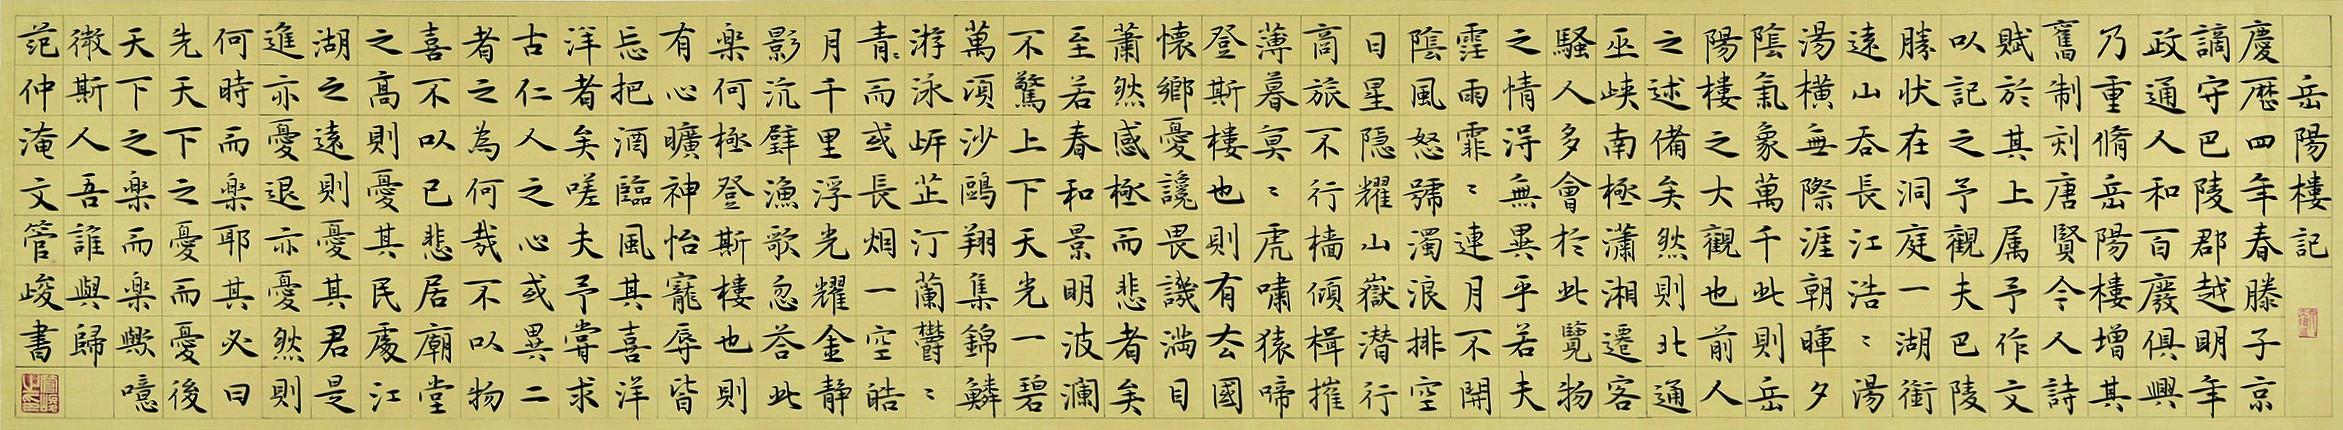 岳陽樓記
慶厯四年春滕子京
謫守巴陵郡越明年
政通人和百廢俱興
乃重脩岳陽樓增其
舊制刻唐賢今人詩
賦於其上属予作文
以記之予觀夫巴陵
勝状在洞庭一湖銜
遠山吞長江浩〻湯
湯橫無際涯朝暉夕
陰氣象萬千此則岳
陽樓之大觀也前人
之述備矣然則北通
巫峡南極瀟湘遷客
騷人多會於此覽物
之情淂無異乎若夫
霪雨霏〻連月不開
陰風怒號濁浪排空
日星隱耀山嶽潜行
商旅不行檣傾楫摧
薄暮冥〻虎嘯猿啼
登斯樓也則有去國
懷鄉憂讒畏譏滿目
蕭然感極而悲者矣
至若春和景明波澜
不驚上下天光一碧
萬頃沙鷗翔集錦鱗
游泳岸芷汀蘭欝〻
青〻而或長烟一空皓
月千里浮光耀金静
影沉璧漁歌忽荅此
樂何極登斯樓也則
有心曠神怡寵辱皆
忘把酒臨風其喜洋
洋者矣嗟夫予嘗求
古仁人之心或異二
者之為何哉不以物
喜不以己悲居廟堂
之高則憂其民處江
湖之遠則憂其君是
進亦憂退亦憂然則
何時而樂耶其必曰
先天下之憂而憂後
天下之樂而樂歟噫
微斯人吾誰與歸
范仲淹文管峻書